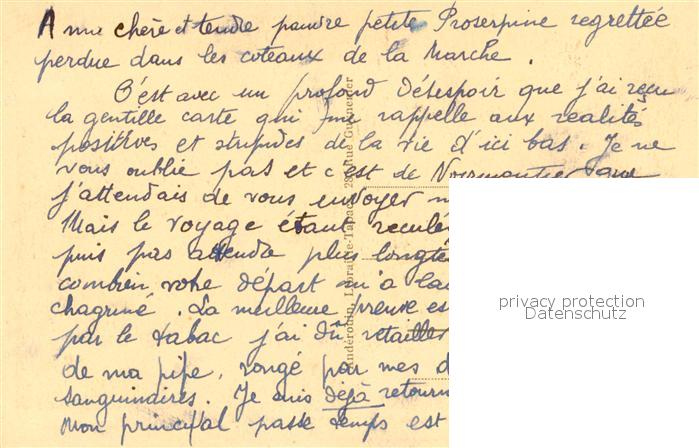 A ma chère et tendre pauvre petite Proserpine regrettée
perdue dans les coteaux de la Marche.
C'est avec un profond désespoir que j'ai reçu
la gentille carte qui me rappelle aux realités
positives et stupides de la vie d'ici bas. Je ne
vous oublie pas et c'est de Noirmoutier que
j'attendais de vous envoyer
Mais le voyage étant reculé
puis pas attendre plus longte
combien votre départ m'a
chagriné. La meilleure preuve es
par le tabac j'ai dû retailler
de ma pipe, rongé par mes d
sanguinaires. Je suis déjà retourn
Mon principal passe temps est
Librairie-Tabac, 29, Rue
privacy protection
Datenschutz